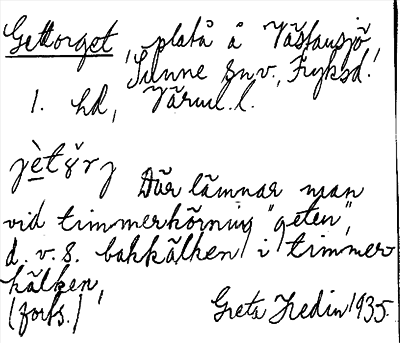 Gettorget, platå å Västansjö,
Sunne sn v., Fryksd.
1. hd, Värml. l.
Där lämnar man
vid timmerkörning "geten",
d. v. s. bakkälken i timmer
kälken,
(forts.) Greta Hedin 1935.